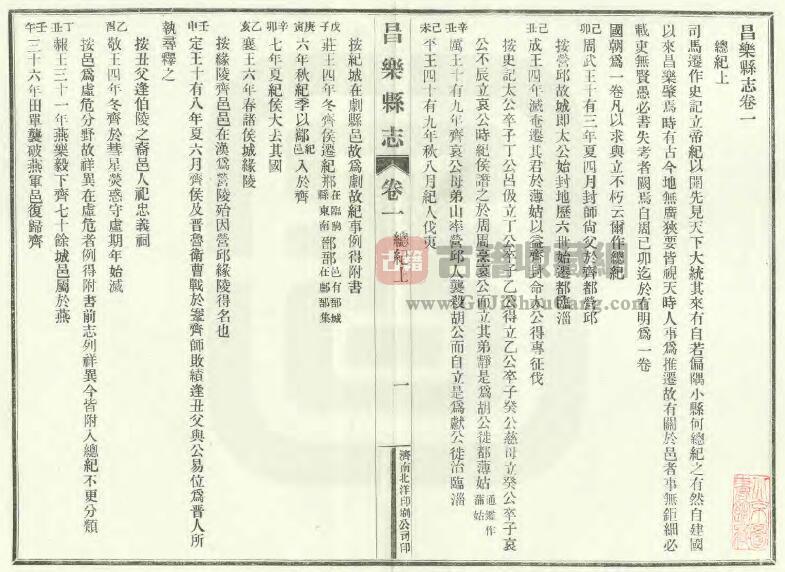 昌樂縣志卷一
總紀上
司馬遷作史記立帝紀以開先見天下大統其來有自若偏隅小縣何總紀之有然自建國
以來昌樂肇焉時有古今地無廣狹要皆視天時人事爲推遷故有關於邑者事無鉅細必
載吏無賢愚必書失考者闕焉自周己卯迄於有明爲一卷
國朝爲一卷凡以求與立不朽云爾作總紀
己卯 周武王十有三年夏四月封師尙父於齊都營邱
按營邱故城卽太公始封地歷六世始遷都臨淄
己丑 成王四年滅奄遷其君於薄姑以益齊封命太公得專征伐
按史記太公卒子丁公呂伋立丁公卒子乙公得立乙公卒子癸公慈母立癸公卒子哀
公不辰立哀公時紀侯譖之於周周烹哀公而立其弟靜是爲胡公徙都薄姑 通鑑作蒲姑
辛丑 厲王十有九年齊哀公母弟山率營邱人襲殺胡公而自立是爲獻公徙治臨淄
己未 平王四十有九年秋八月紀人伐夷
昌樂縣志
卷一 總紀上
一
濟南北洋印刷公司印
按紀城在劇縣邑故爲劇故紀事例得附書
戊子 莊王四年冬齊侯遷紀郱 在臨朐縣東南 鄑 鄑邑有鄑城 郚 在郚郚集
庚寅 六年秋紀季以酅 紀邑 入於齊
辛卯 七年夏紀侯大去其國
乙亥 襄王六年春諸侯城緣陵
按緣陵齊邑邑在漢爲營陵殆因營邱緣陵得名也
壬申 定王十有八年夏六月齊侯及晉魯衞曹戰於鞌齊師敗績逢丑父與公易位爲晉人所
執尋釋之
按丑父逢伯陵之裔邑人祀忠義祠
乙酉 敬王四年冬齊於彗星熒惑守虛期年始滅
按邑爲虛危分野故祥異在虛危者例得附書前志列祥異今皆附入總紀不更分類
丁丑 報王三十一年燕樂毅下齊七十餘城邑屬於燕
壬午 三十六年田單襲破燕軍邑復歸齊
古籍收藏網
www.GuJiShouCang.com